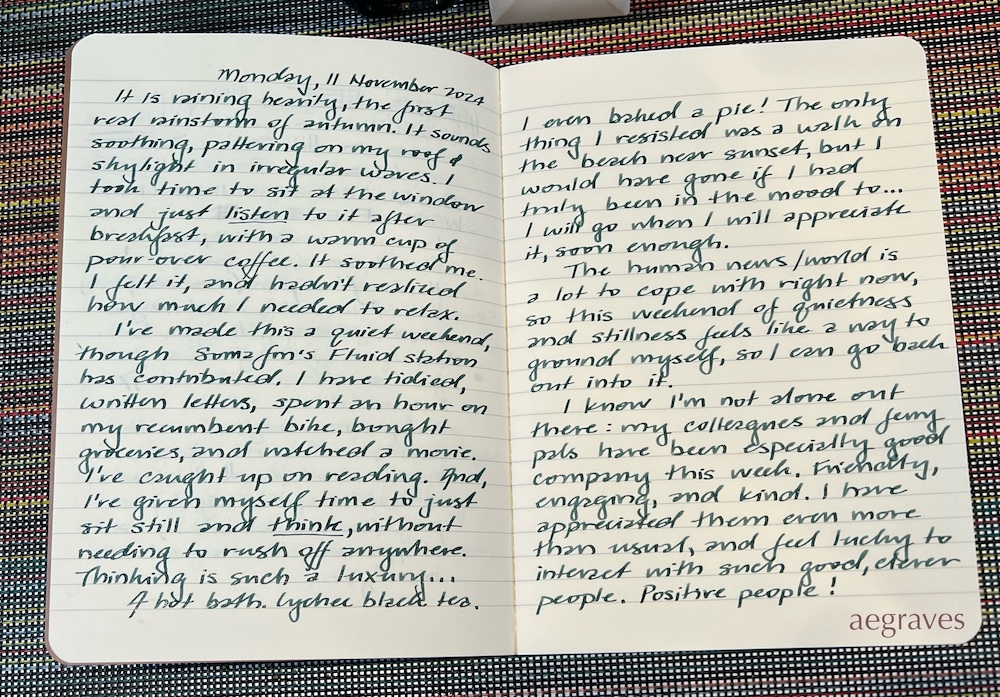 Monday, 11 November 2024
It is raining heavily, the first
real rainstorm of autumn. It sounds
soothing, pattering on my roof &
skylight in irregular waves. I
took time to sit at the window
and just listen to it after
breakfast, with a warm cup of
pour over coffee. It soothed me.
I felt it, and hadn't realized
how much I needed to relax.
I've made this a quiet weekend,
though Somafm's Fluid station
has contributed. I have tidied,
written letters, spent an hour on
my recumbent bike, bought
groceries, and watched a movie.
I've caught up on reading. And,
I've given myself time to just
sit still and think, without
needing to rush off anywhere.
Thinking is such a luxury...
A hot bath. Lychee black tea.
I even baked a pie! The only
thing I resisted was a walk on
the beach near sunset, but I
would have gone if I had
truly been in the mood to...
I will go when I will appreciate
it, soon enough.
The human news/world is
a lot to cope with right now,
so this weekend of quietness
and stillness feels like a way to
ground myself, so I can go back
out into it.
I know I'm not alone out
there: my colleagues and ferry
pals have been especially good
company this week. Friendly,
engaging, and kind. I have
appreciated them even more
than usual, and feel lucky to
interact with such good, clever
people. Positive people!
aegraves